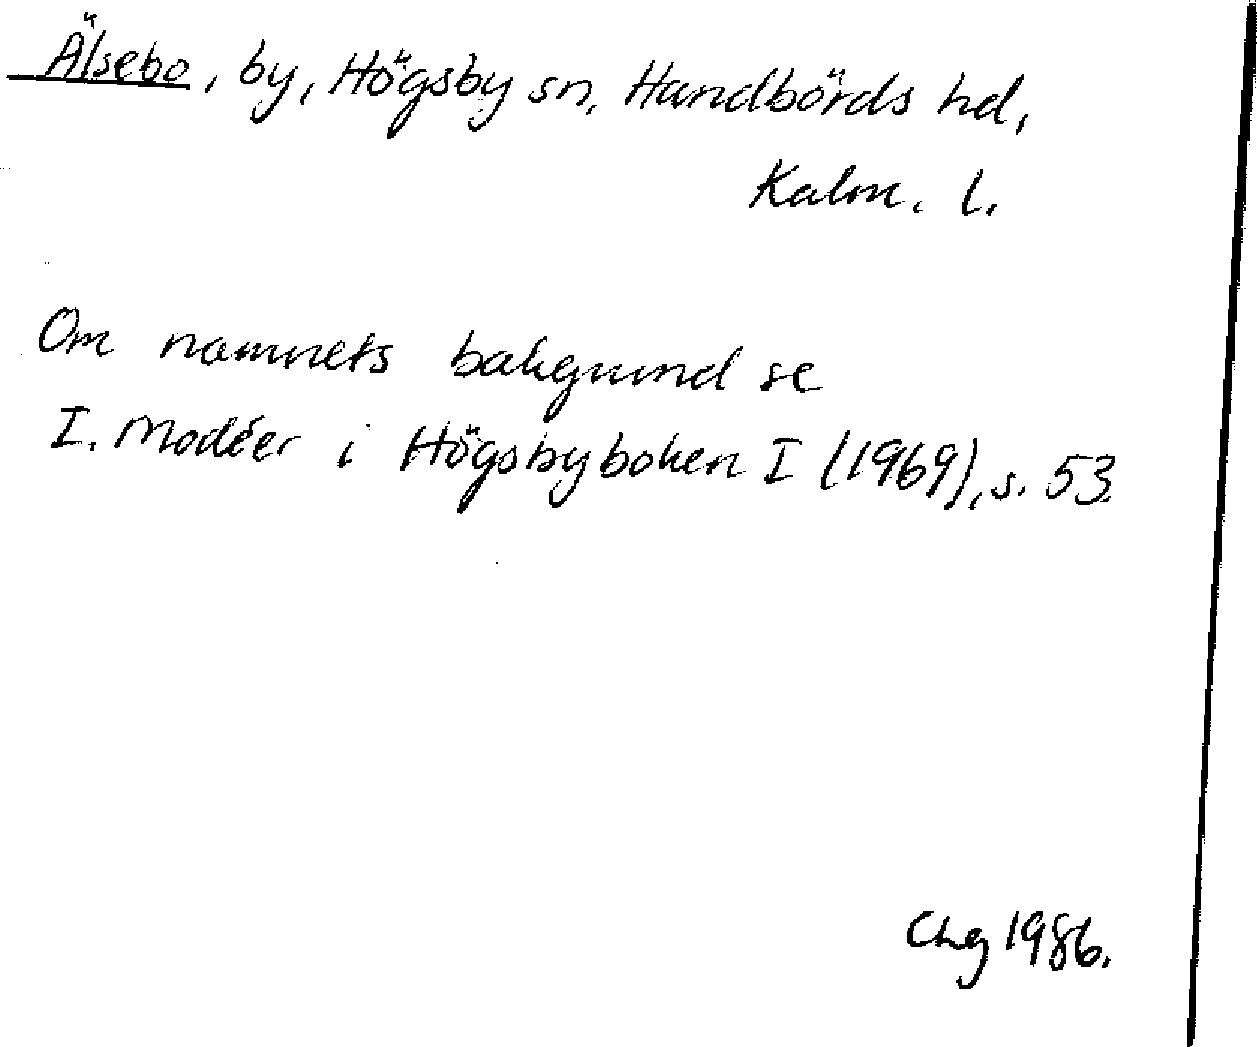 Älsebo, by, Högsby sn, Handbörds hd,
Kalm. l.
Om namnets bakgrund se
I. Modéer i Högsbyboken I (1969), s. 53.
Chg 1986.